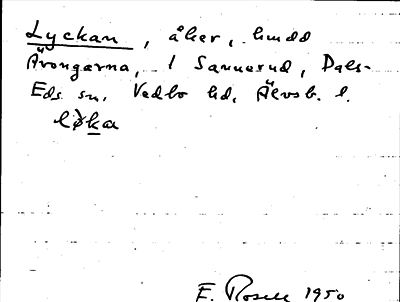 Lyckan, åker, hmdd
Ärongarna, 1 Sannerud, Dals-
Eds sn, Vedbo hd, Älvsb. l.
løka
E. Rosell 1950